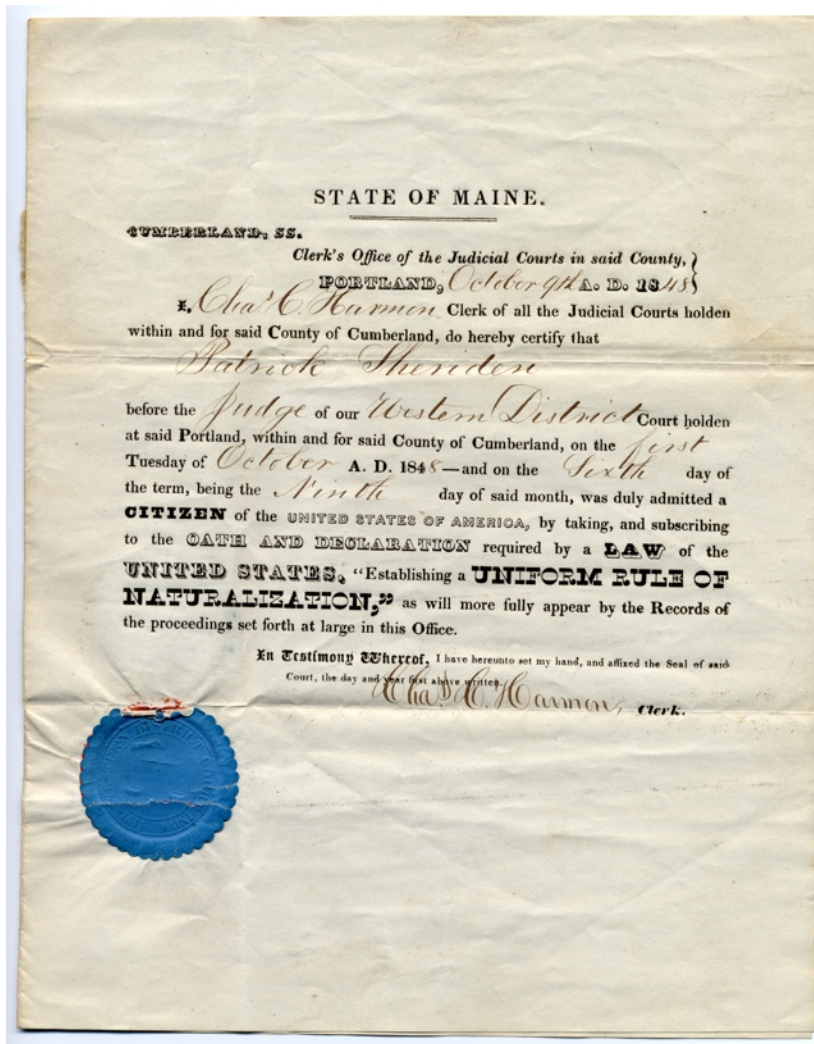 STATE OF MAINE.
CUMBERLAND, SS.
Clerk's Office of the Judicial Courts in said County,
PORTLAND, October 9th A. D. 1848
I, Chas. C. Harmon Clerk of all the Judicial Courts holden
within and for said County of Cumberland, do hereby certify that
Patrick Sheriden
before the Judge of our Western District Court holden
at said Portland, within and for said County of Cumberland, on the first
Tuesday of October A. D. 1848—and on the Sixth day of
the term, being the Ninth day of said month, was duly admitted a
CITIZEN of the UNITED STATES OF AMERICA, by taking, and subscribing
to the OATH AND DECLARATION required by a LAW of the
UNITED STATES, "Establishing a UNIFORM RULE OF
NATURALIZATION," as will more fully appear by the Records of
the proceedings set forth at large in this Office.
In Testimony Whereof, I have hereunto set my hand, and affixed the Seal of said
Court, the day and year first above written.
Chas. C. Harmon, Clerk.